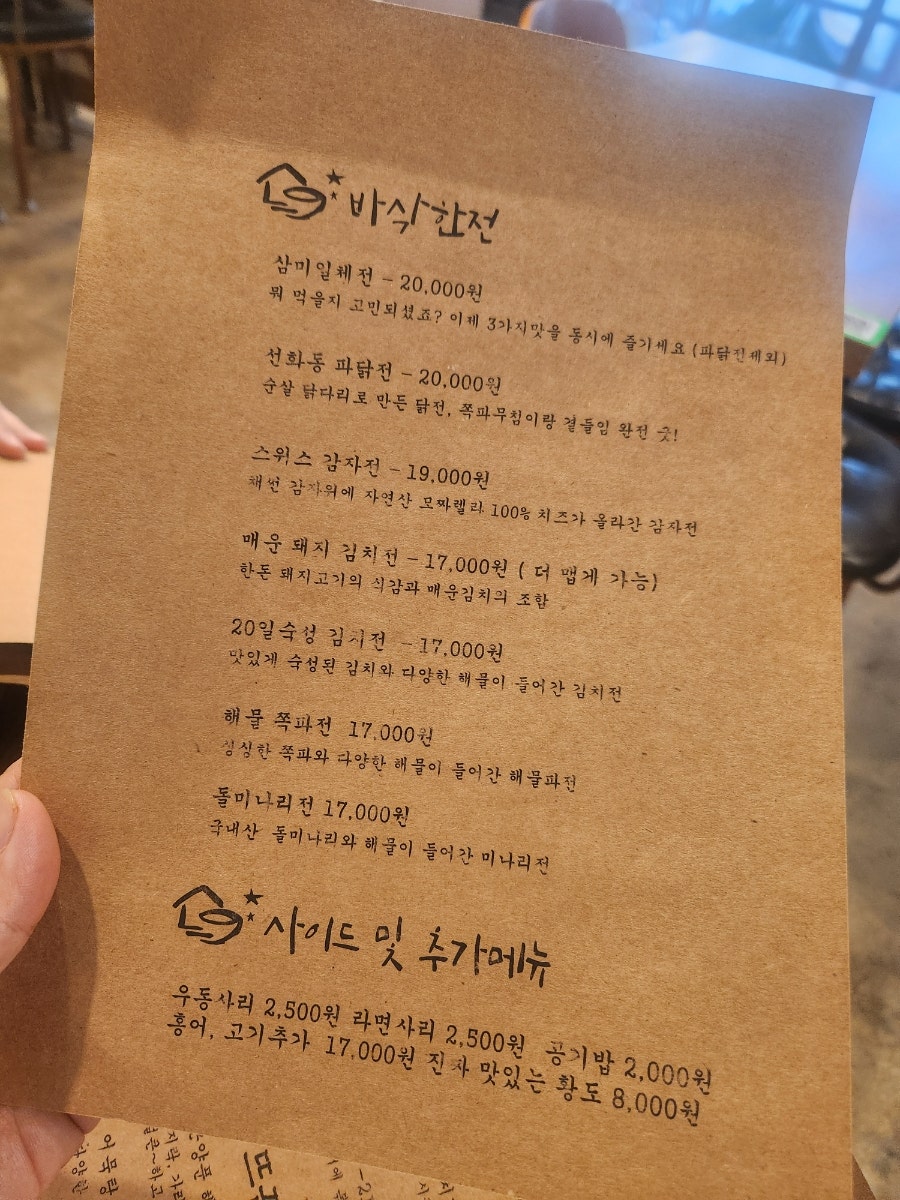 바삭한전
삼미일체전 - 20,000원
뭐 먹을지 고민되셨죠? 이제 3가지맛을 동시에 즐기세요 (파닭전제외)
선화동 파닭전 - 20,000원
순살 닭다리로 만든 닭전, 쪽파무침이랑 곁들임 완전 굿!
스위스 감자전 - 19,000원
채썬 감자위에 자연산 모짜렐라 100% 치즈가 올라간 감자전
매운 돼지 김치전 - 17,000원 ( 더 맵게 가능)
한돈 돼지고기의 식감과 매운김치의 조합
20일숙성 김치전 - 17,000원
맛있게 숙성된 김치와 다양한 해물이 들어간 김치전
해물 쪽파전 17,000원
싱싱한 쪽파와 다양한 해물이 들어간 해물파전
돌미나리전 17,000원
국내산 돌미나리와 해물이 들어간 미나리전
사이드 및 추가메뉴
우동사리 2,500원 라면사리 2,500원 공기밥 2,000원
홍어, 고기추가 17,000원 진짜 맛있는 황도 8,000원
어묵탕